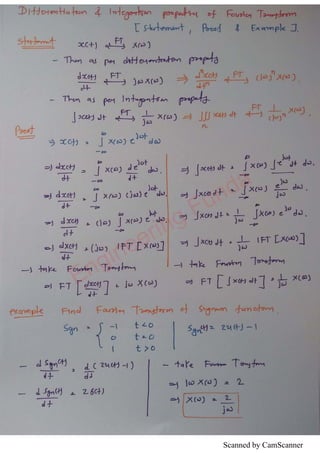 Differentiation & Integration properties of Fourier Transform
[Statement, Proof & Example]
Statement
x(t) ←FT→ X(ω)
- Then as per differentiation property
dx(t)/dt ←FT→ jω X(ω) ⇒ dⁿx(t)/dtⁿ ←FT→ (jω)ⁿ X(ω).
- Then as per Integration property
∫x(t) dt ←FT→ 1/jω X(ω) ⇒ ∫∫∫ x(t) dt ←FT→ 1/(jω)ⁿ X(ω).
n
Proof
⇒ x(t) = ∫_{-∞}^{∞} X(ω) e^{jωt} dω
⇒ dx(t)/dt = ∫_{-∞}^{∞} X(ω) d e^{jωt}/dt dω.
⇒ dx(t)/dt = ∫_{-∞}^{∞} X(ω) (jω) e^{jωt} dω.
⇒ dx(t)/dt = (jω) ∫_{-∞}^{∞} X(ω) e^{jωt} dω.
⇒ dx(t)/dt = (jω) IFT [X(ω)]
→ take Fourier Transform
⇒ FT [dx(t)/dt] = jω X(ω)
⇒ ∫x(t) dt = ∫_{-∞}^{∞} X(ω) ∫e^{jωt} dt dω.
⇒ ∫x(t) dt = ∫_{-∞}^{∞} X(ω) e^{jωt}/jω dω.
⇒ ∫x(t) dt = 1/jω ∫_{-∞}^{∞} X(ω) e^{jωt} dω.
⇒ ∫x(t) dt = 1/jω IFT [X(ω)]
→ take Fourier Transform
⇒ FT [∫x(t) dt] = 1/jω X(ω)
example Find Fourier Transform of Signum function.
Sgn = { -1 t<0
0 t=0
1 t>0
Sgn(t) = 2u(t) - 1
- d Sgn(t)/dt = d/dt (2u(t) - 1)
- d Sgn(t)/dt = 2 δ(t)
- take Fourier Transform
⇒ jω X(ω) = 2
⇒ X(ω) = 2/jω
Engineering Funda
Scanned by CamScanner